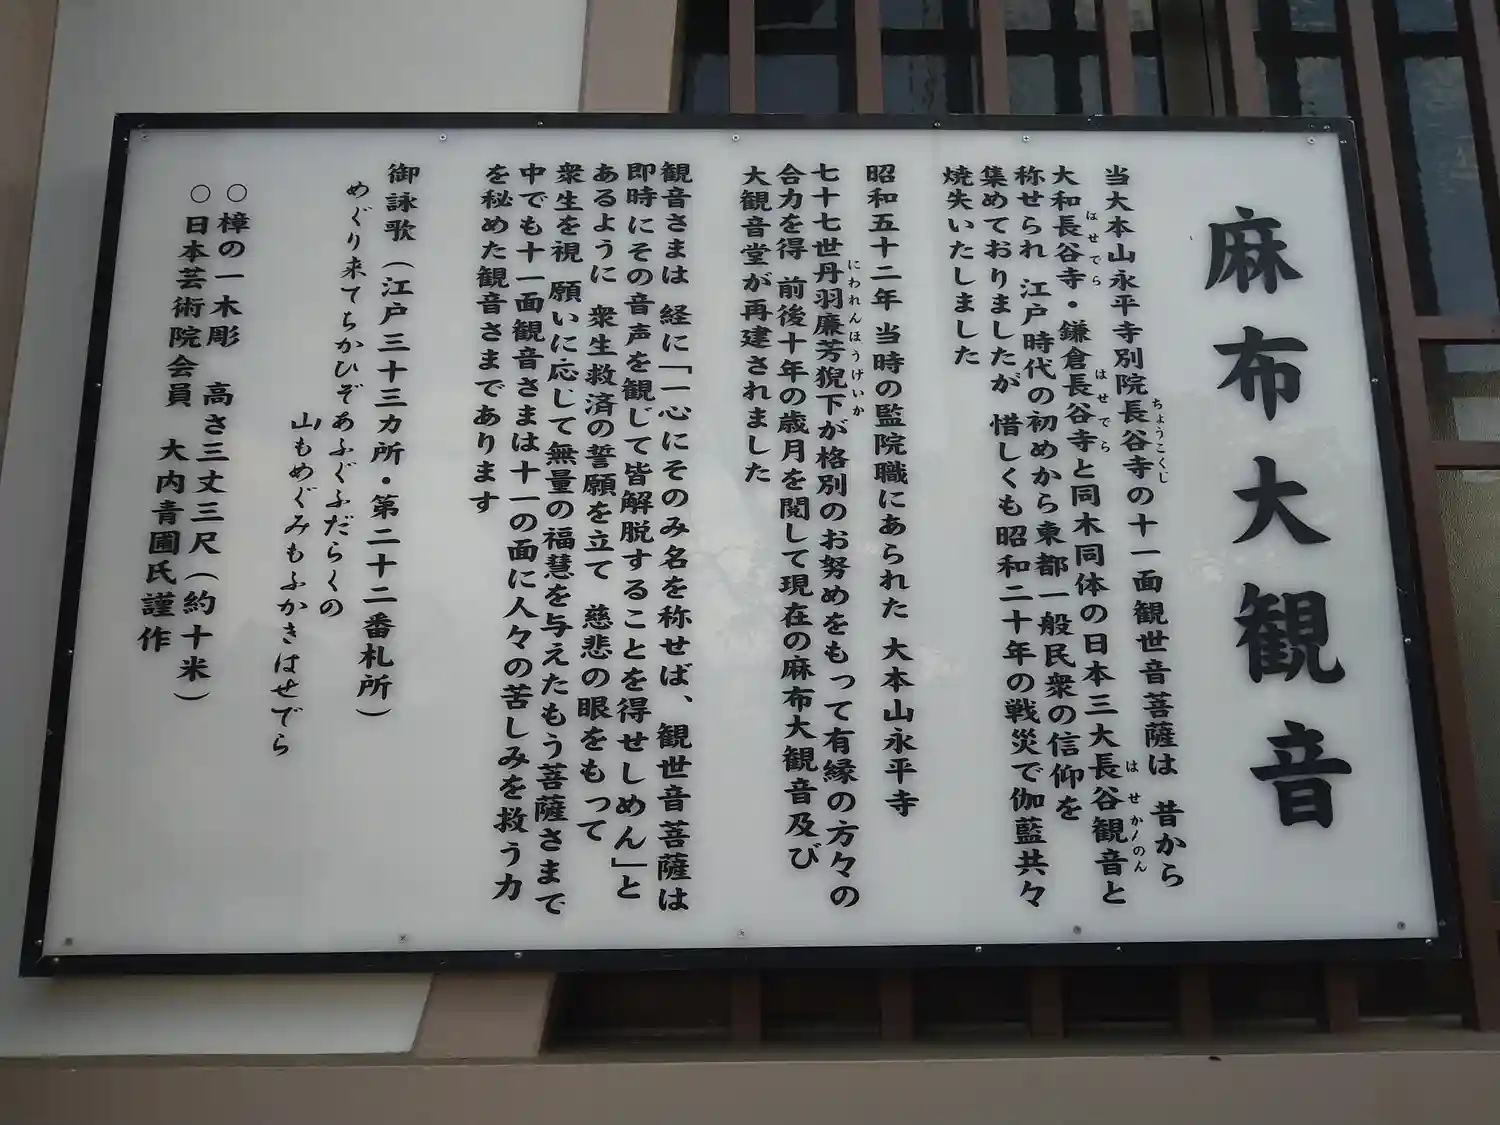 麻布大観音
当大本山永平寺別院長谷寺の十一面観世音菩薩は 昔から
大和長谷寺・鎌倉長谷寺と同木同体の日本三大長谷観音と
称せられ 江戸時代の初めから東都一般民衆の信仰を
集めておりましたが 惜しくも昭和二十年の戦災で伽藍共々
焼失いたしました
昭和五十二年 当時の監院職にあられた 大本山永平寺
七十七世丹羽廉芳猊下が格別のお努めをもって有縁の方々の
合力を得 前後十年の歳月を閲して現在の麻布大観音及び
大観音堂が再建されました
観音さまは 経に「一心にそのみ名を称せば、観世音菩薩は
即時にその音声を観じて皆解脱することを得せしめん」と
あるように 衆生救済の誓願を立て 慈悲の眼をもって
衆生を視 願いに応じて無量の福慧を与えたもう菩薩さまで
中でも十一面観音さまは十一の面に人々の苦しみを救う力
を秘めた観音さまであります
御詠歌（江戸三十三カ所・第二十二番札所）
めぐり来てちかひぞあふぐふだらくの
山もめぐみもふかきはせでら
○樟の一木彫 高さ三丈三尺（約十米）
○日本芸術院会員 大内青圃氏謹作
ちょうこくじ
はせでら
はせでら
はせかんのん
にわれんほうげいか